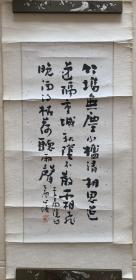 竹塢無塵水檻清相思迢
遞隔重城秋陰不散霜飛
晚留得枯荷聽雨聲